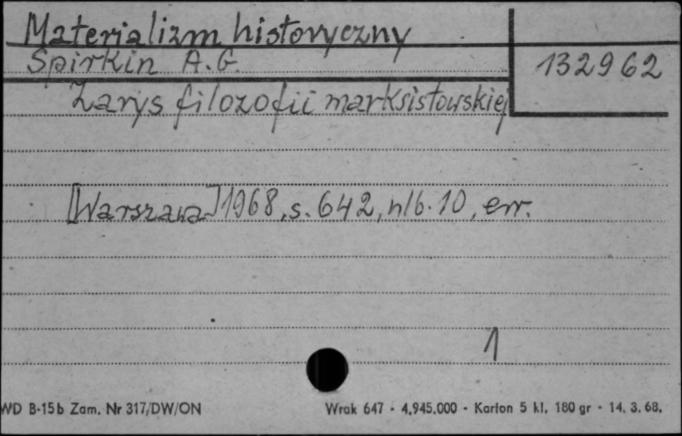 Materializm historyczny
Spirkin A.G.
132962
Zarys filozofii marksistowskiej
[Warszawa] 1968, s. 642, nlb. 10, err.
1
WD B-15b Zam. Nr 317/DW/ON
Wrak 647 - 4,945.000 - Karton 5 kl. 180 gr - 14. 3. 68.